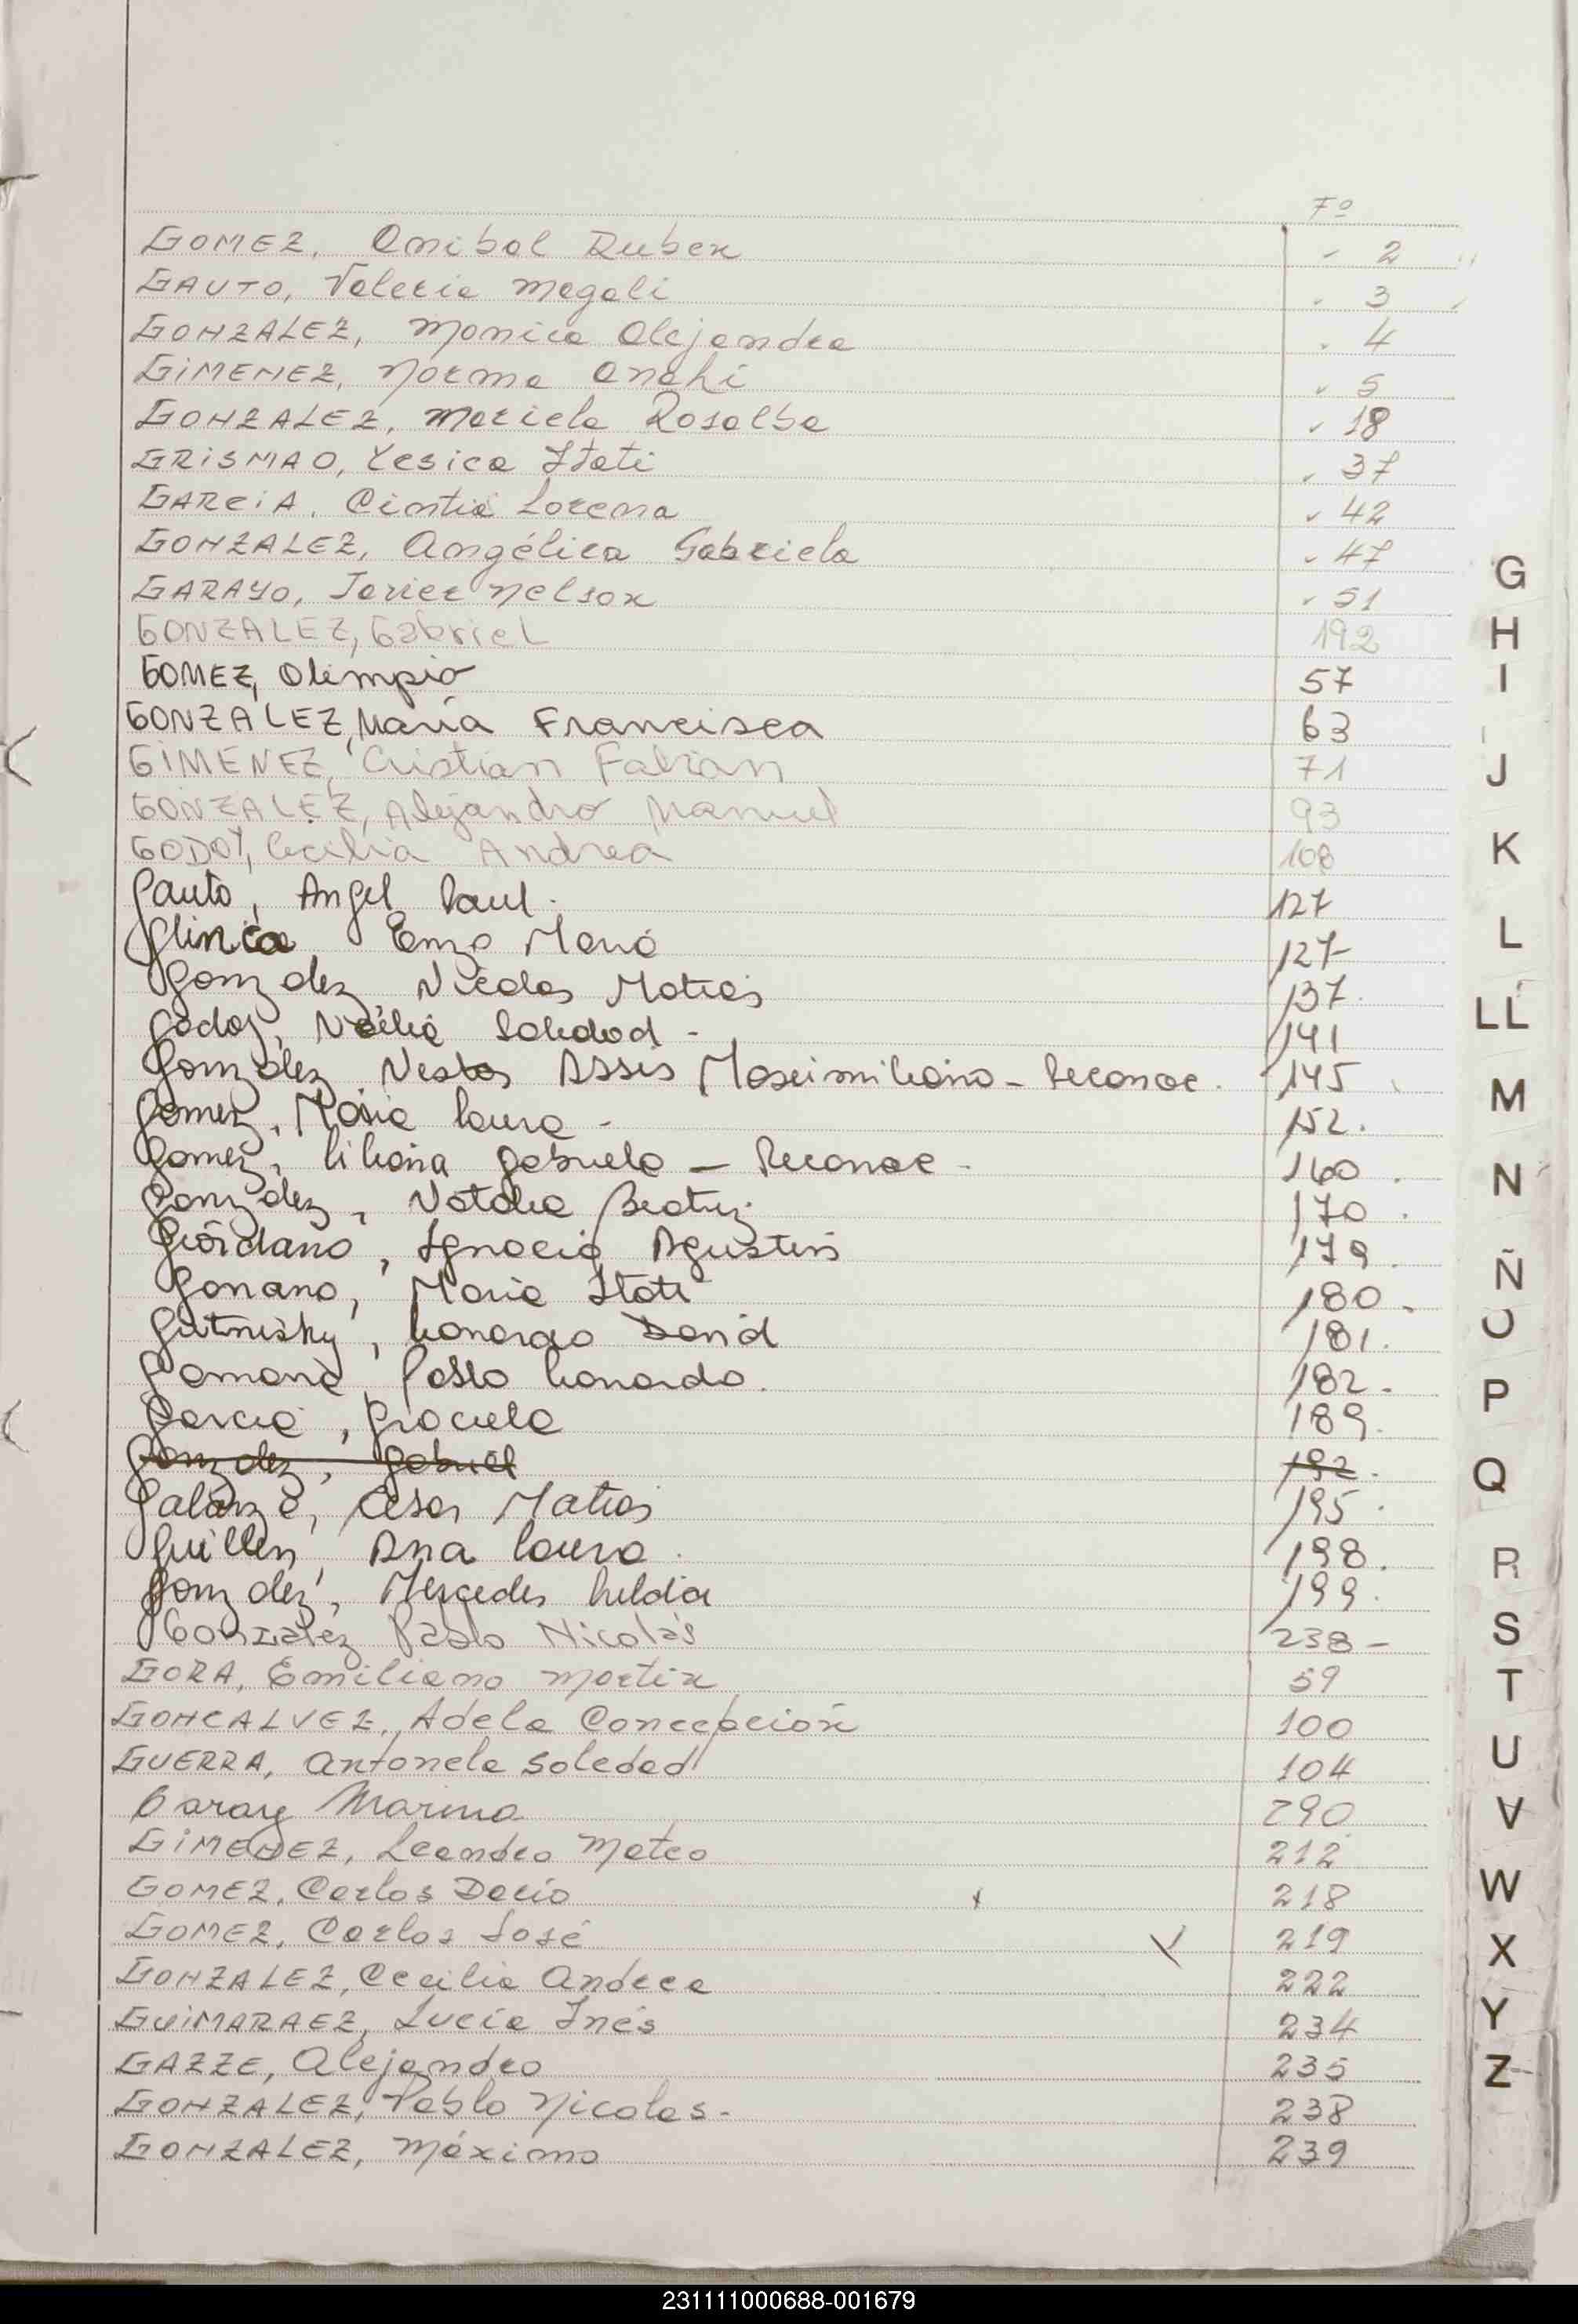 Fº
GOMEZ, Anibal Ruben 2
GAUTO, Valeria Magali 3
GONZALEZ, Monica Alejandra 4
GIMENEZ, Norma Anahi 5
GONZALEZ, Mariela Rosalba 18
GRISMAO, Yesica Itati 37
GARCIA, Cintia Lorena 42
GONZALEZ, Angélica Gabriela 47
GARAYO, Javier Nelson 51
GONZALEZ, Gabriel 192
GOMEZ, Olimpio 57
GONZALEZ, María Francisca 63
GIMENEZ, Cristian Fabian 71
GONZALEZ, Alejandro Manuel 93
GODOY, Cecilia Andrea 108
Gauto, Angel Raul. 127
Enzo 127
Gonzalez, Nicolas Matias 137.
Godoy, Soledad - 141
Gonzalez, Nestor Assis Maximiliano - Reconoc. 145
Gomez, Maria Laura - 152.
Gomez, Liliana Gabriela - Reconoc - 160.
Gonzalez, Natalia Beatriz 170.
Giordano, Ignacio Agustin 179.
Gonano, Maria Itati 180.
Gutnisky, Leonardo David 181.
Leonardo. 182.
Garcia, Graciela 189.
Gonzalez, Gabriel 192.
Cesar Matias 195.
Guillen, Ana Laura. 198.
Gonzalez, Mercedes 199.
Gonzalez Pablo Nicolás 238 -
GORA, Emiliano Martin 59
GONCALVEZ, Adela Concepción 100
GUERRA, Antonela Soledad 104
Garay Marina 290
GIMENEZ, Leandro Mateo 212
GOMEZ, Carlos Dario x 218
GOMEZ, Carlos José 219
GONZALEZ, Cecilia Andrea 222
GUIMARAEZ, Lucía Inés 234
GAZZE, Alejandro 235
GONZALEZ, Pablo Nicolas - 238
GONZALEZ, Máximo 239
G
H
I
J
K
L
LL
M
N
Ñ
O
P
Q
R
S
T
U
V
W
X
Y
Z
231111000688-001679